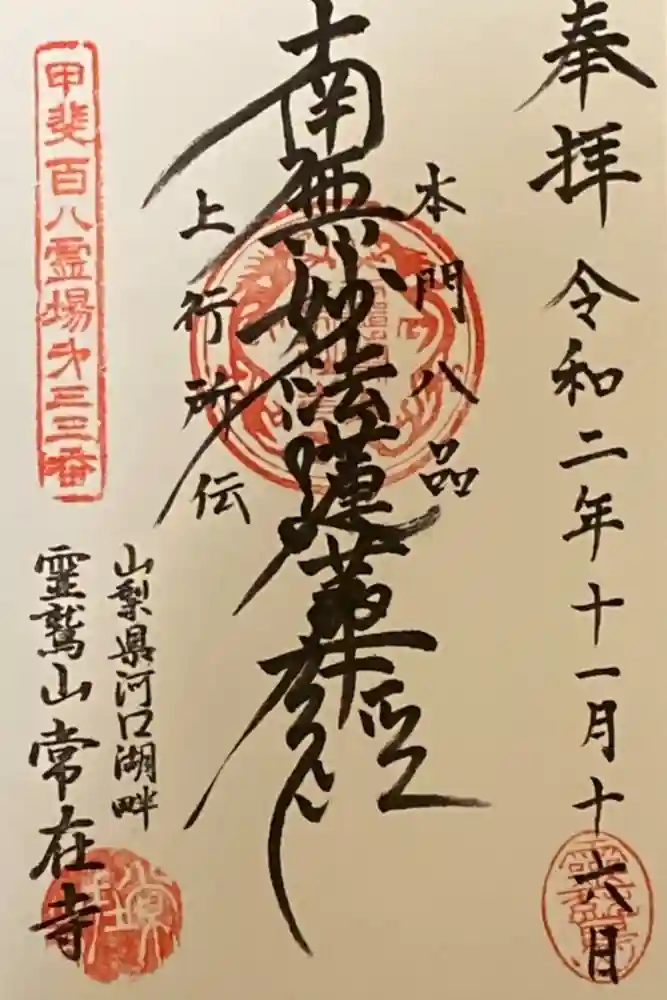 奉拝 令和二年十一月十六日
本門八品
南無妙法蓮華経
上行所伝
山梨県河口湖畔
霊鷲山 常在寺
甲斐百八霊場第三三番